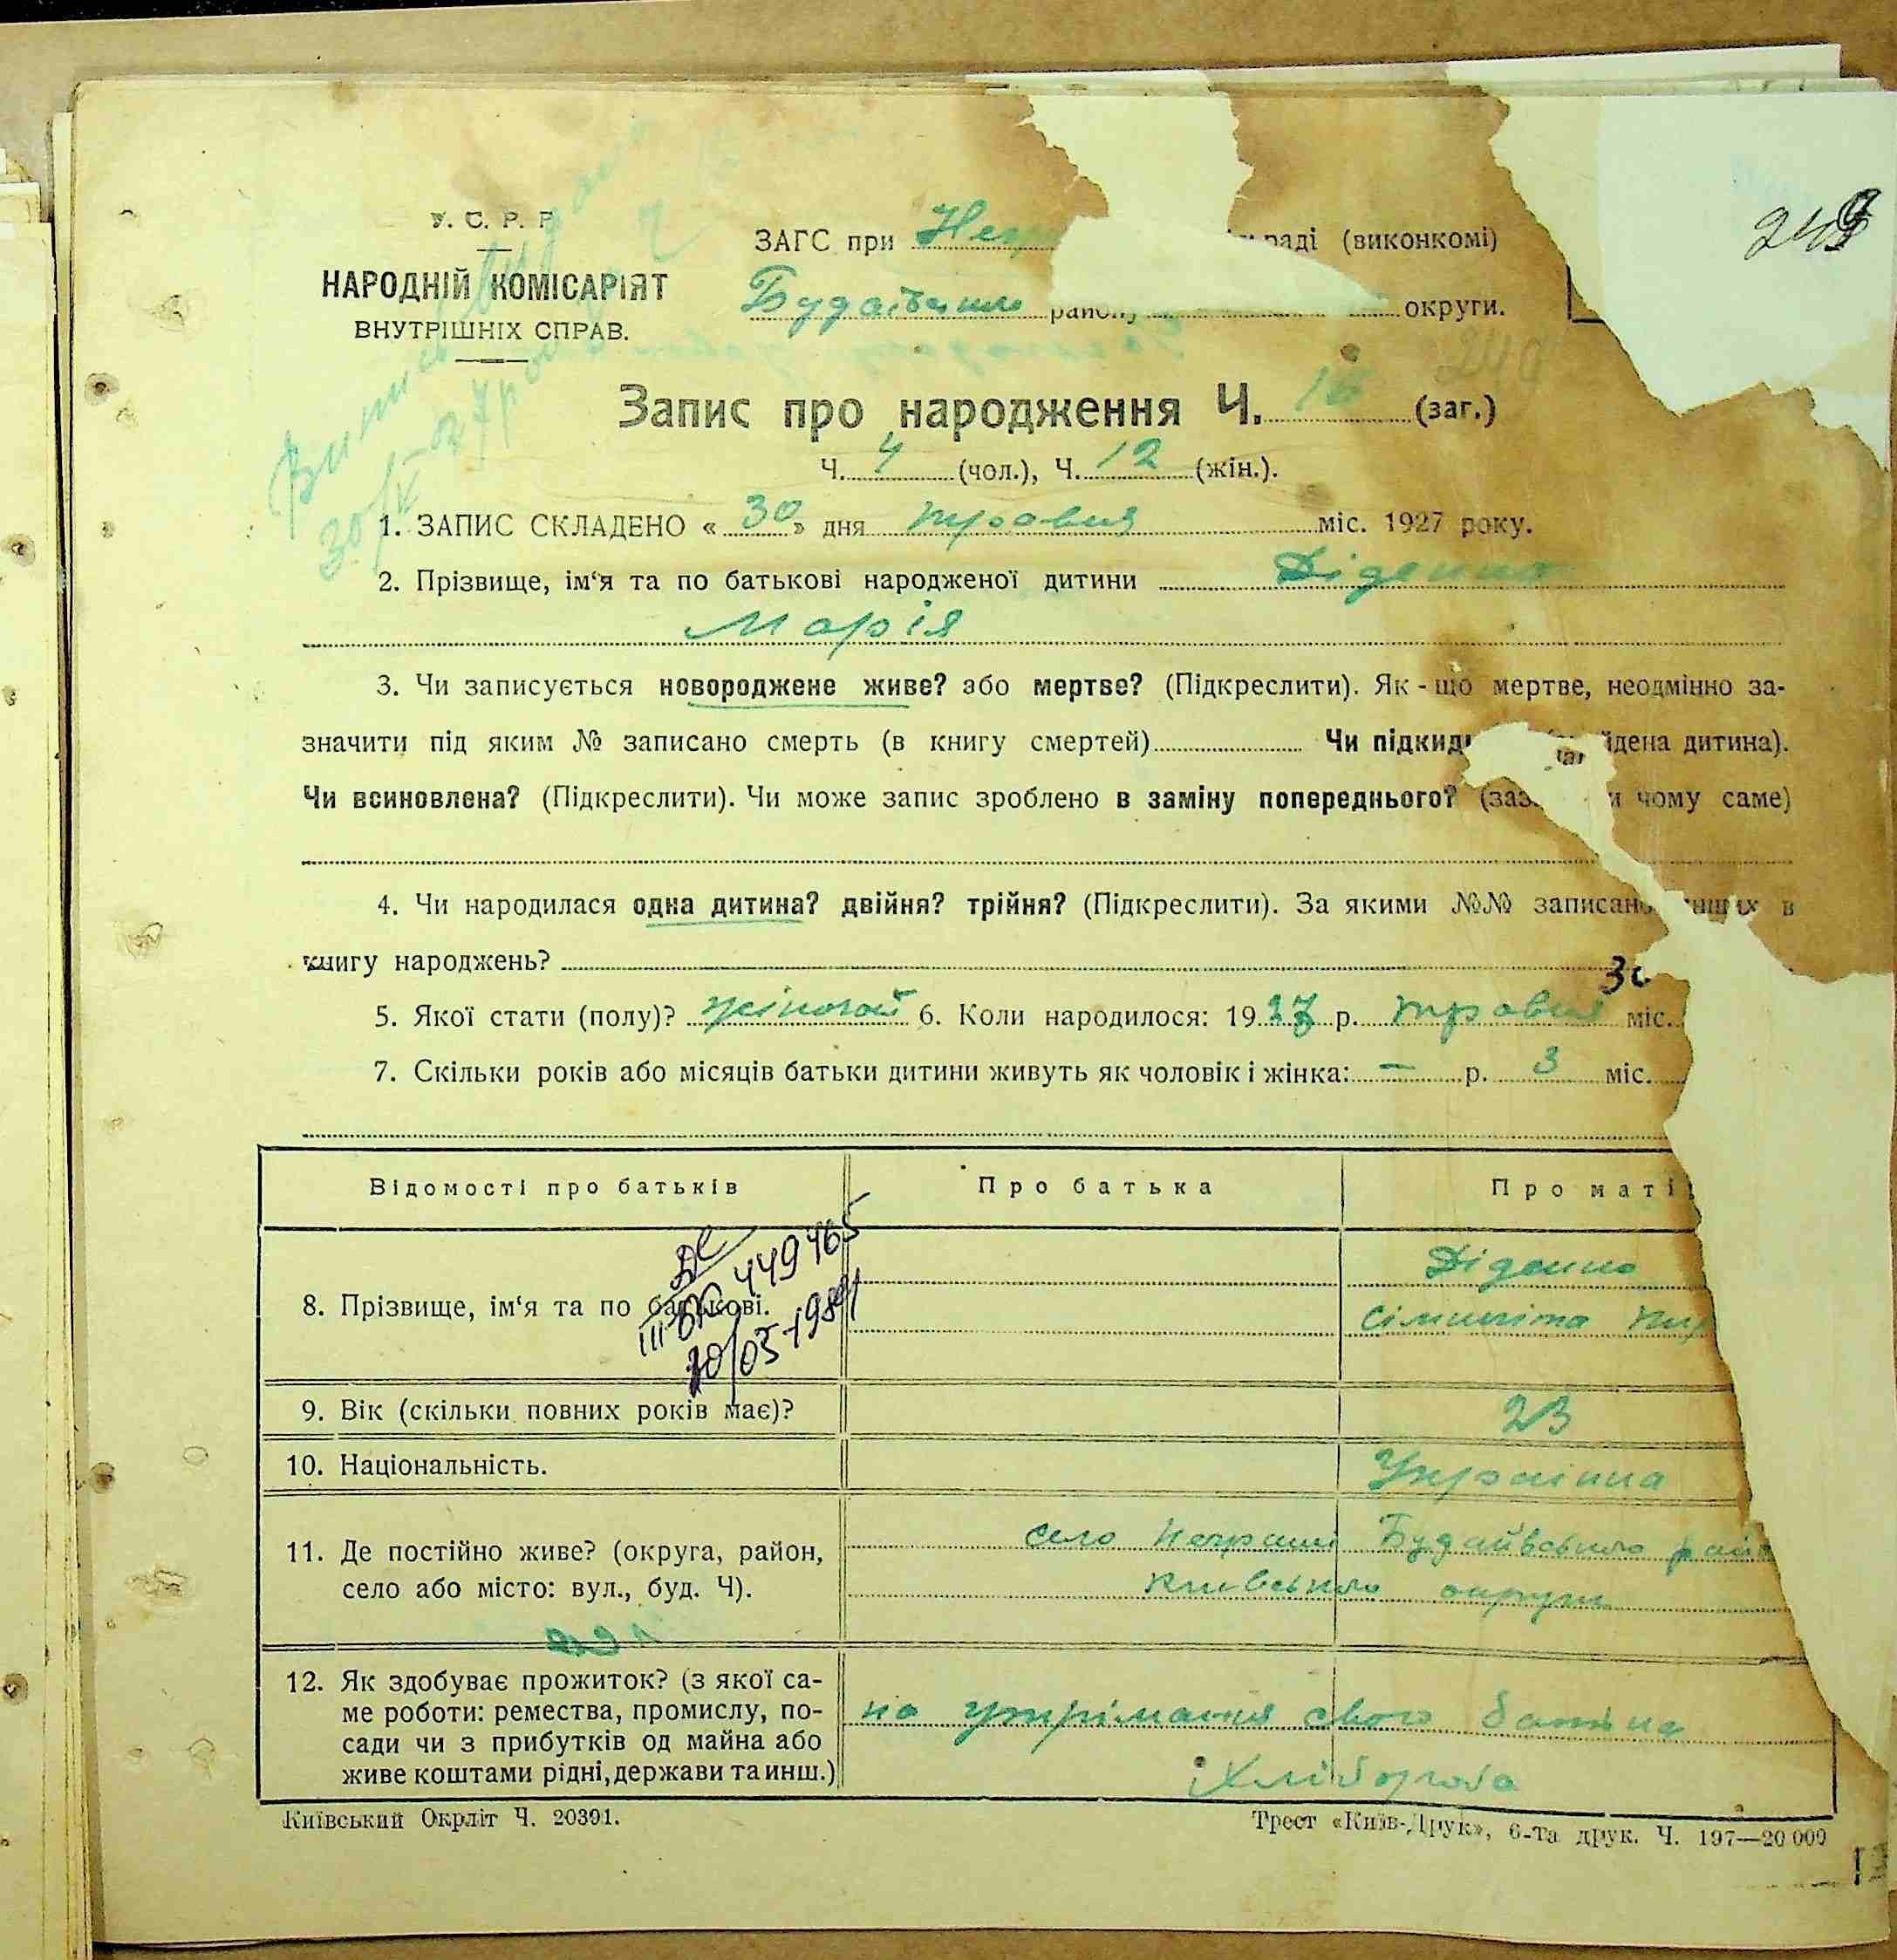 249
У. С. Р. Р.
НАРОДНІЙ КОМІСАРІЯТ
ВНУТРІШНІХ СПРАВ.
ЗАГС при раді (виконкомі)
району округи.
Запис про народження Ч. 16 (заг.)
Ч. 4 (чол.), Ч. 12 (жін.).
1. ЗАПИС СКЛАДЕНО « 30 » дня травня міс. 1927 року.
2. Прізвище, ім‘я та по батькові народженої дитини Діденко
Марія
3. Чи записується новороджене живе? або мертве? (Підкреслити). Як-що мертве, неодмінно за-
значити під яким № записано смерть (в книгу смертей) Чи підкид йдена дитина).
Чи всиновлена? (Підкреслити). Чи може запис зроблено в заміну попереднього? чому саме)
4. Чи народилася одна дитина? двійня? трійня? (Підкреслити). За якими №№ записано в
книгу народжень?
30
5. Якої стати (полу)? жіночої 6. Коли народилося: 1927 р. травня міс.
7. Скільки років або місяців батьки дитини живуть як чоловік і жінка: — р. 3 міс.
Відомості про батьків Про батька Про маті
8. Прізвище, ім‘я та по батькові. Діденко
449465
9. Вік (скільки повних років має)? 23
10. Національність. Українка
11. Де постійно живе? (округа, район,
село або місто: вул., буд. Ч).
село Неграші Будаївського рай
Київського округи
12. Як здобуває прожиток? (з якої са-
ме роботи: ремества, промислу, по-
сади чи з прибутків од майна або
живе коштами рідні, держави та инш.)
на утрімання свого батька
Хлібороба
Київський Окрліт Ч. 20391.
Трест «Київ-Друк», 6-та друк. Ч. 197—20 000